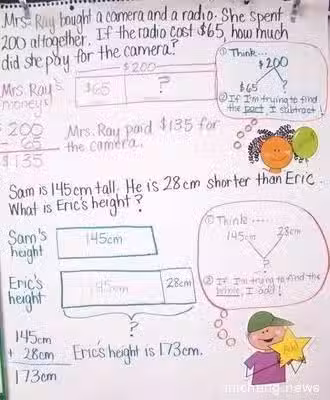 Mrs. Ray bought a camera and a radio. She spent
200 altogether. If the radio cost $65, how much
did she pay for the camera?
$200
Mrs. Ray's
money
$65
?
① Think...
$200
$65
② If I'm trying to find
the part I subtract
200
- 65
$135
Mrs. Ray paid $135 for
the camera.
Sam is 145cm tall. He is 28cm shorter than Eric.
What is Eric's height?
Sam's
height
145cm
① Think.....
145cm
28cm
?
② If I'm trying to find the
whole, I add!
Eric's
height
145cm
28cm
?
145cm
+ 28cm
173cm
Eric's height is 173cm.